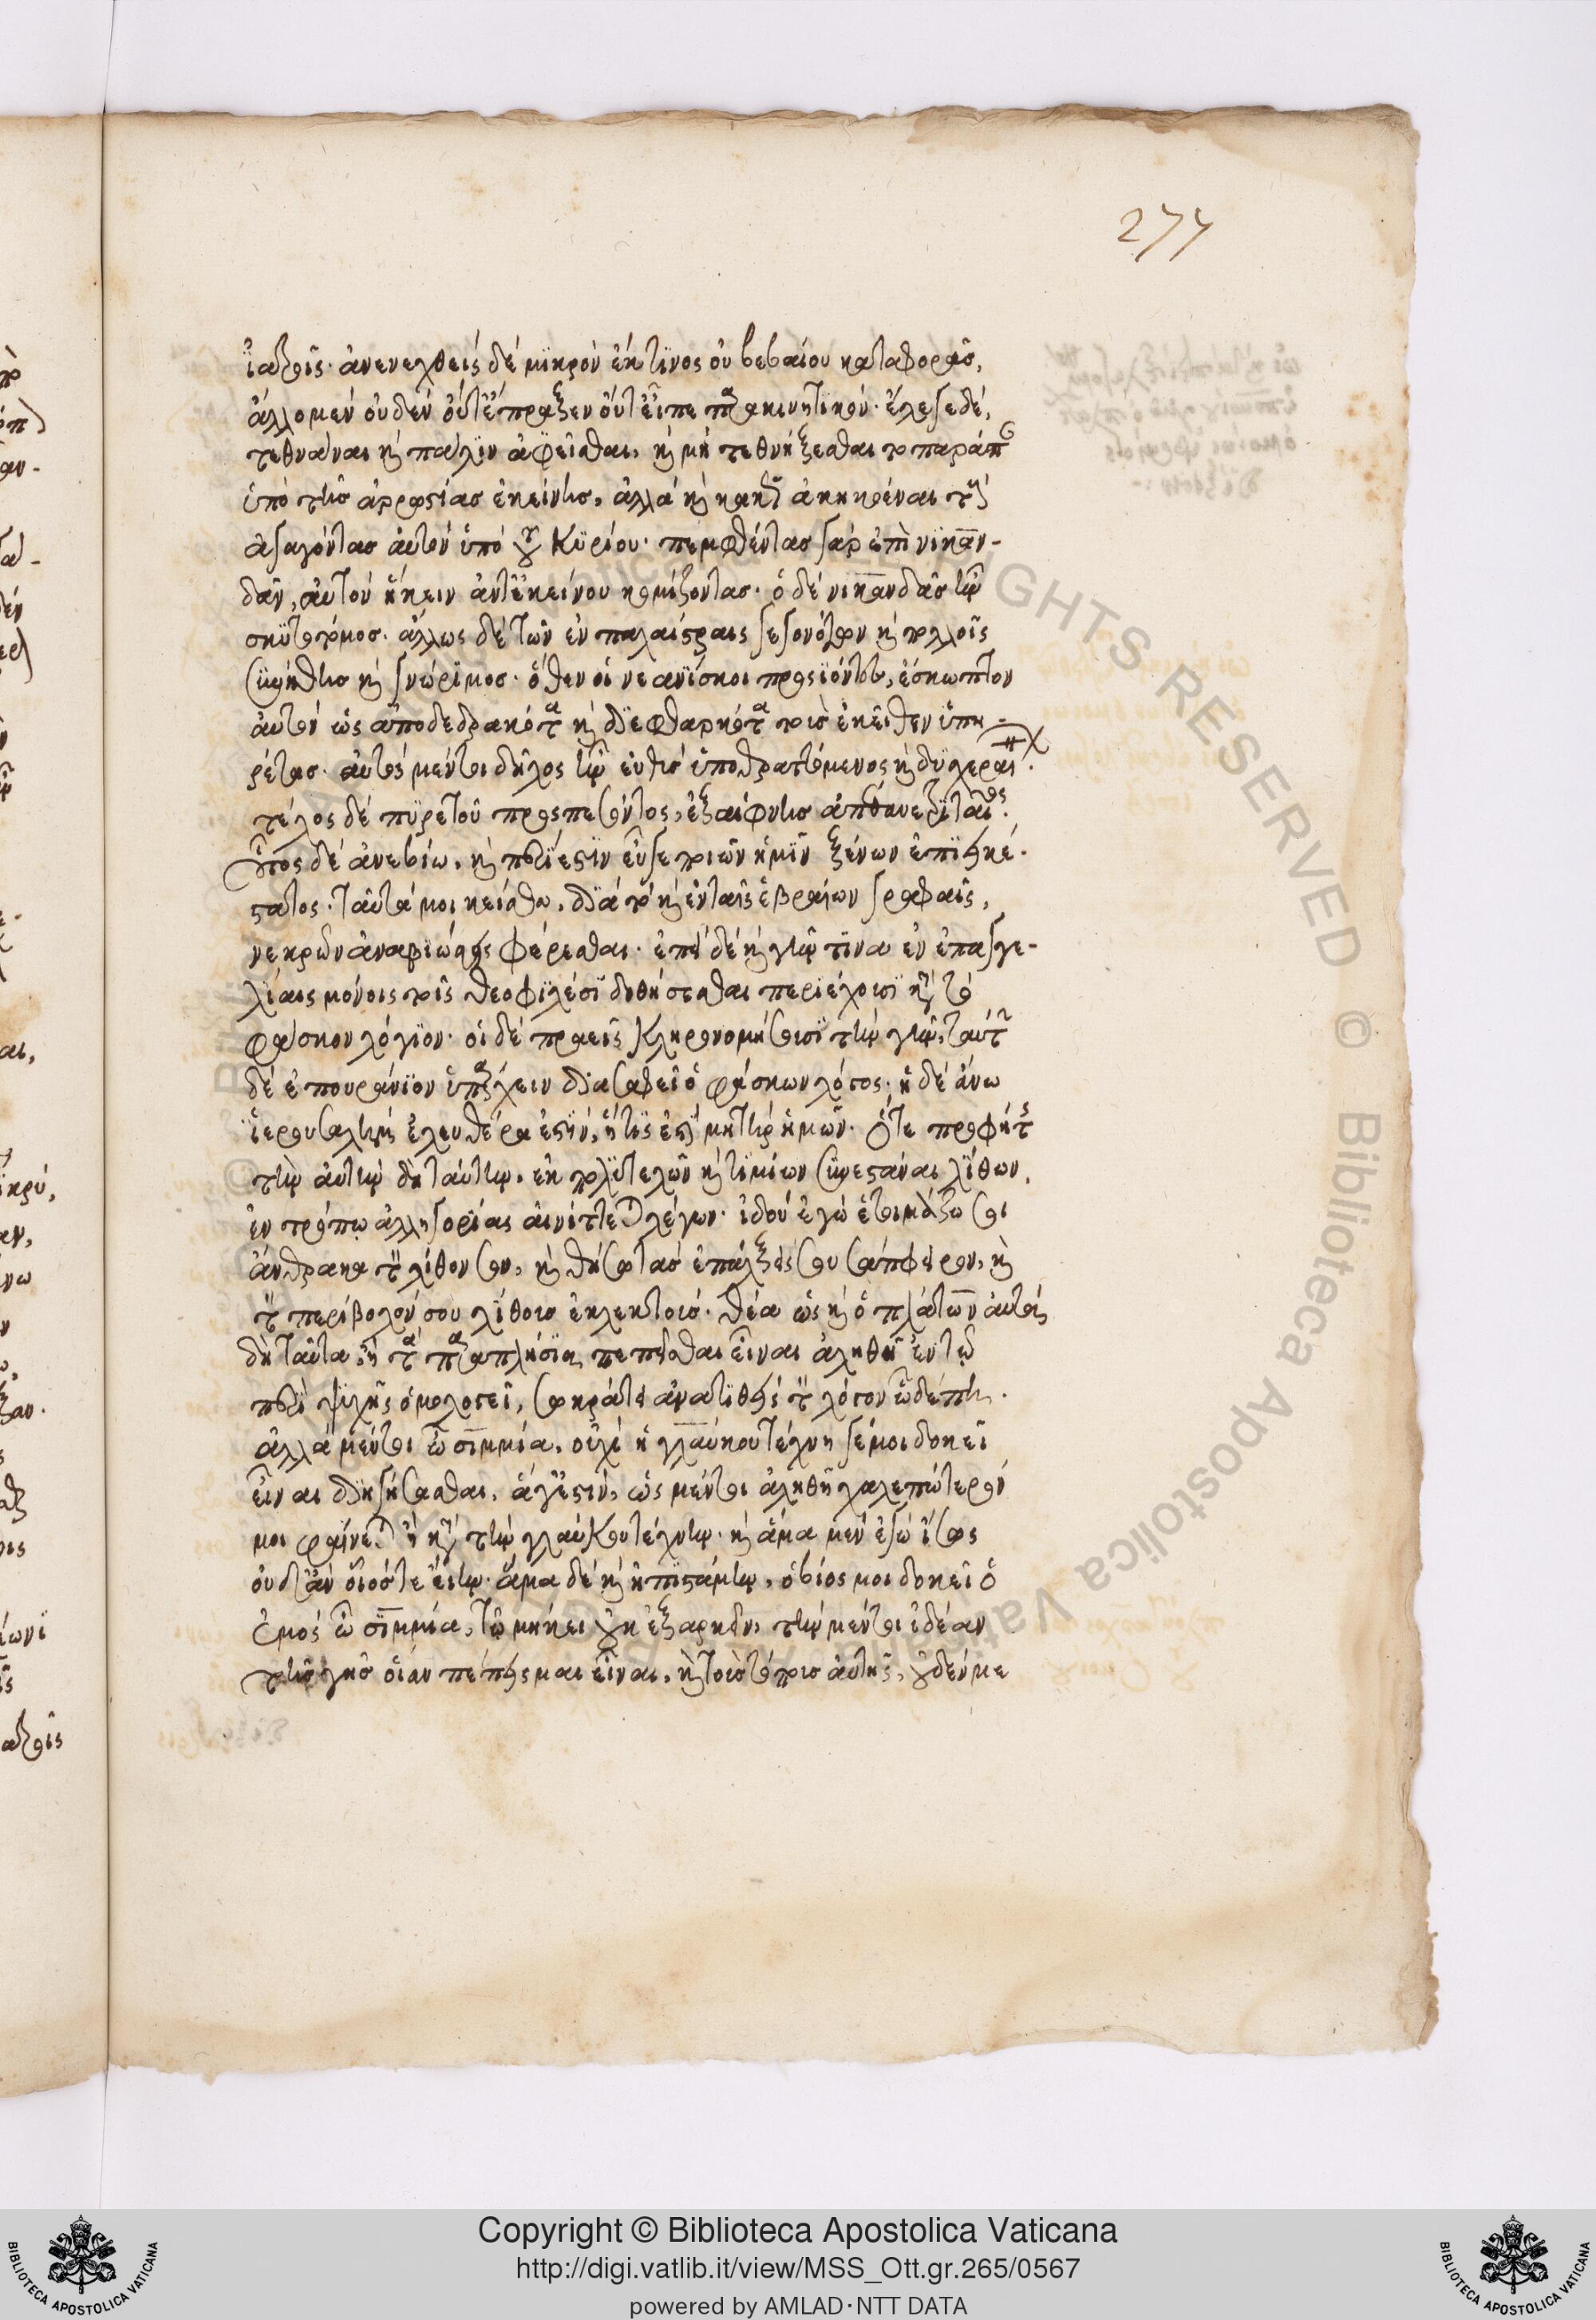 277
ἰατροῖς· ἀνενεχθεὶς δὲ μικρὸν ἔκ τινος οὐ βεβαίου καταφορᾶς,
ἄλλο μὲν οὐδὲν οὔτ' ἔπραξεν οὔτ' εἶπε παρακινητικόν· ἔλεγε δὲ,
τεθνάναι καὶ πάλιν ἀφεῖσθαι, καὶ μὴ τεθνήξεσθαι τὸ παράπαν
ὑπὸ τῆς ἀρρωστίας ἐκείνης, ἀλλὰ καὶ κακῶς ἀκηκοέναι τοὺς
ἀγαγόντας αὐτὸν ὑπὸ τοῦ Κυρίου· πεμφθέντας γὰρ ἐπὶ νικαν-
δᾶν, αὐτὸν ἥκειν ἀντ' ἐκείνου κομίζοντας· ὁ δὲ νικανδᾶς ἦν
σκυτοτόμος· ἄλλως δὲ τῶν ἐν παλαίστραις γεγονότων καὶ πολλοῖς
συνήθης καὶ γνώριμος· ὅθεν οἱ νεανίσκοι προσιόντες, ἔσκωπτον
αὐτὸν ὡς ἀποδεδρακότα καὶ διεφθαρκότα τοὺς ἐκεῖθεν ὑπη-
ρέτας· αὐτὸς μέντοι δῆλος ἦν εὐθὺς ὑποθραττόμενος καὶ δυσχεραί-
τέλος δὲ πυρετοῦ προσπεσόντος, ἐξαίφνης ἀπέθανε τριταῖος.
οὗτος δὲ ἀνεβίω, καὶ περίεστιν εὖ γε ποιῶν ἡμῖν ξένων ἐπιεικέ-
στατος· ταῦτά μοι κείσθω, διὰ τὸ καὶ ἐν ταῖς ἑβραίων γραφαῖς,
νεκρῶν ἀναβιώσεις φέρεσθαι· ἐπεὶ δὲ καὶ γῆν τινα ἐν ἐπαγγε-
λίαις μόνοις τοῖς θεοφιλέσι δοθήσεσθαι περιέχουσι κατὰ τὸ
φάσκον λόγιον· οἱ δὲ πραεῖς κληρονομήσουσι τὴν γῆν, ταύτην
δὲ ἐπουράνιον ὑπάρχειν διασαφεῖ ὁ φάσκων λόγος· ἡ δὲ ἄνω
ἱερουσαλὴμ ἐλευθέρα ἐστὶν, ἥτις ἐστὶ μήτηρ ἡμῶν· ὅ τε προφήτης
τὴν αὐτὴν δὴ ταύτην, ἐκ πολυτελῶν καὶ τιμίων συνεστάναι λίθων,
ἐν τρόπῳ ἀλληγορίας αἰνίττεται λέγων· ἰδοὺ ἐγὼ ἑτοιμάζω σοι
ἄνθρακα τὸν λίθον σου, καὶ θήσω τὰς ἐπάλξεις σου σάπφειρον, καὶ
τὸν περίβολόν σου λίθους ἐκλεκτούς· θέα ὡς καὶ ὁ πλάτων αὐτὰ
δὴ ταῦτα, ἢ τὰ παραπλήσια πεπεῖσθαι εἶναι ἀληθῆ ἐν τῷ
περὶ ψυχῆς ὁμολογεῖ, σωκράτει ἀνατιθεὶς τὸν λόγον ὧδέ πη.
ἀλλὰ μέντοι ὦ σιμμία, οὐχὶ ἡ γλαύκου τέχνη γέ μοι δοκεῖ
εἶναι διηγήσασθαι, ἅ γ' ἐστιν, ὡς μέντοι ἀληθῆ χαλεπώτερόν
μοι φαίνεται ἢ κατὰ τὴν γλαύκου τέχνην· καὶ ἅμα μὲν ἐγὼ ἴσως
οὐδ' ἂν οἷός τε εἴην· ἅμα δὲ καὶ ἠπιστάμην, ὁ βίος μοι δοκεῖ ὁ
ἐμὸς ὦ σιμμία, τῷ μήκει οὐκ ἐξαρκεῖν, τὴν μέντοι ἰδέαν
τῆς γῆς οἵαν πέπεισμαι εἶναι, καὶ τοὺς τόπους αὐτῆς, οὐδέν με
Copyright © Biblioteca Apostolica Vaticana
http://digi.vatlib.it/view/MSS_Ott.gr.265/0567
powered by AMLAD·NTT DATA